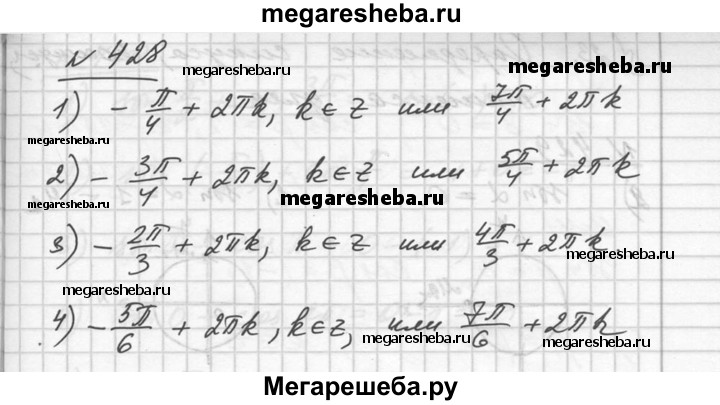 megaresheba.ru
№ 428
megaresheba.ru
megaresheba.ru
1) - π/4 + 2πk, k∈Z или 7π/4 + 2πk
megaresheba.ru
2) - 3π/4 + 2πk, k∈Z или 5π/4 + 2πk
megaresheba.ru
3) - 2π/3 + 2πk, k∈Z или 4π/3 + 2πk
megaresheba.ru
megaresheba.ru
4) - 5π/6 + 2πk, k∈Z, или 7π/6 + 2πk
megaresheba.ru
Мегарешеба.ру